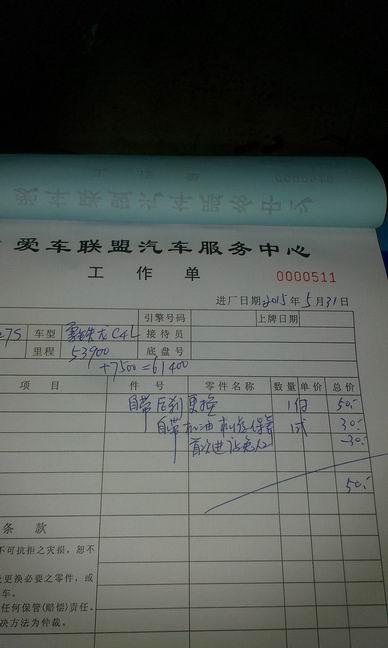 爱车联盟汽车服务中心
工作单
0000511
进厂日期2015年5月31日
引擎号码 上牌日期
27S 车型 雪铁龙C4L 接待员
里程 53900 底盘号
+7500=61400
项目 件号 零件名称 数量 单价 总价
自带后刹更换 1付 50.-
自带机油机滤保养 1式 30.-
首次进店免人工 -30.-
50.-
条款
不可抗拒之灾损，恕不
更换必要之零件，或
车。
任何保管(赔偿)责任。
决方法为仲裁。